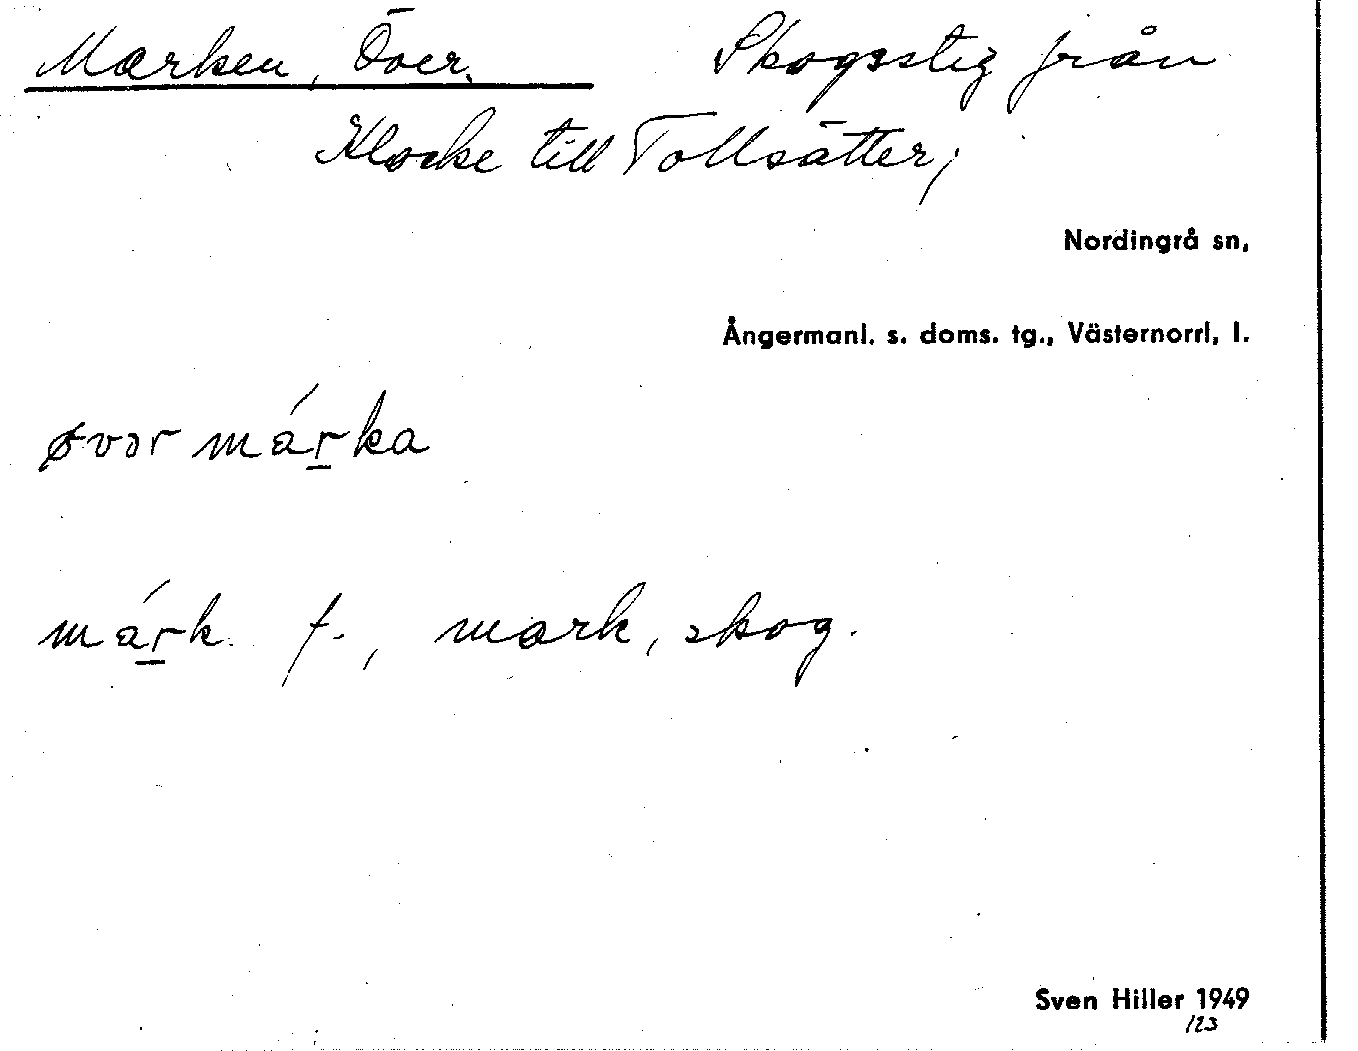 Marken, Över. Skogsstig från
Klocke till Tollsätter;
Nordingrå sn,
Ångermanl. s. doms. tg., Västernorrl. l.
øvər má̱rka
má̱rk f., mark, skog.
Sven Hiller 1949
123